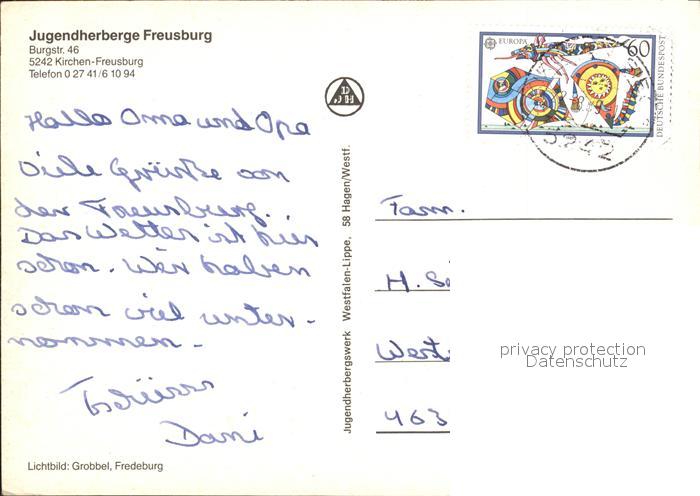 Jugendherberge Freusburg
Burgstr. 46
5242 Kirchen-Freusburg
Telefon 0 27 41/6 10 94
DJH
EUROPA
60
DEUTSCHE BUNDESPOST
5242
Hallo Oma und Opa
Viele Grüße von
der Freusburg.
Das Wetter ist hier
schön. Wir haben
schon viel unter-
nommen.
Tschüsss
Dani
Lichtbild: Grobbel, Fredeburg
Jugendherbergswerk Westfalen-Lippe, 58 Hagen/Westf.
Fam.
H. S
West
463
privacy protection
Datenschutz